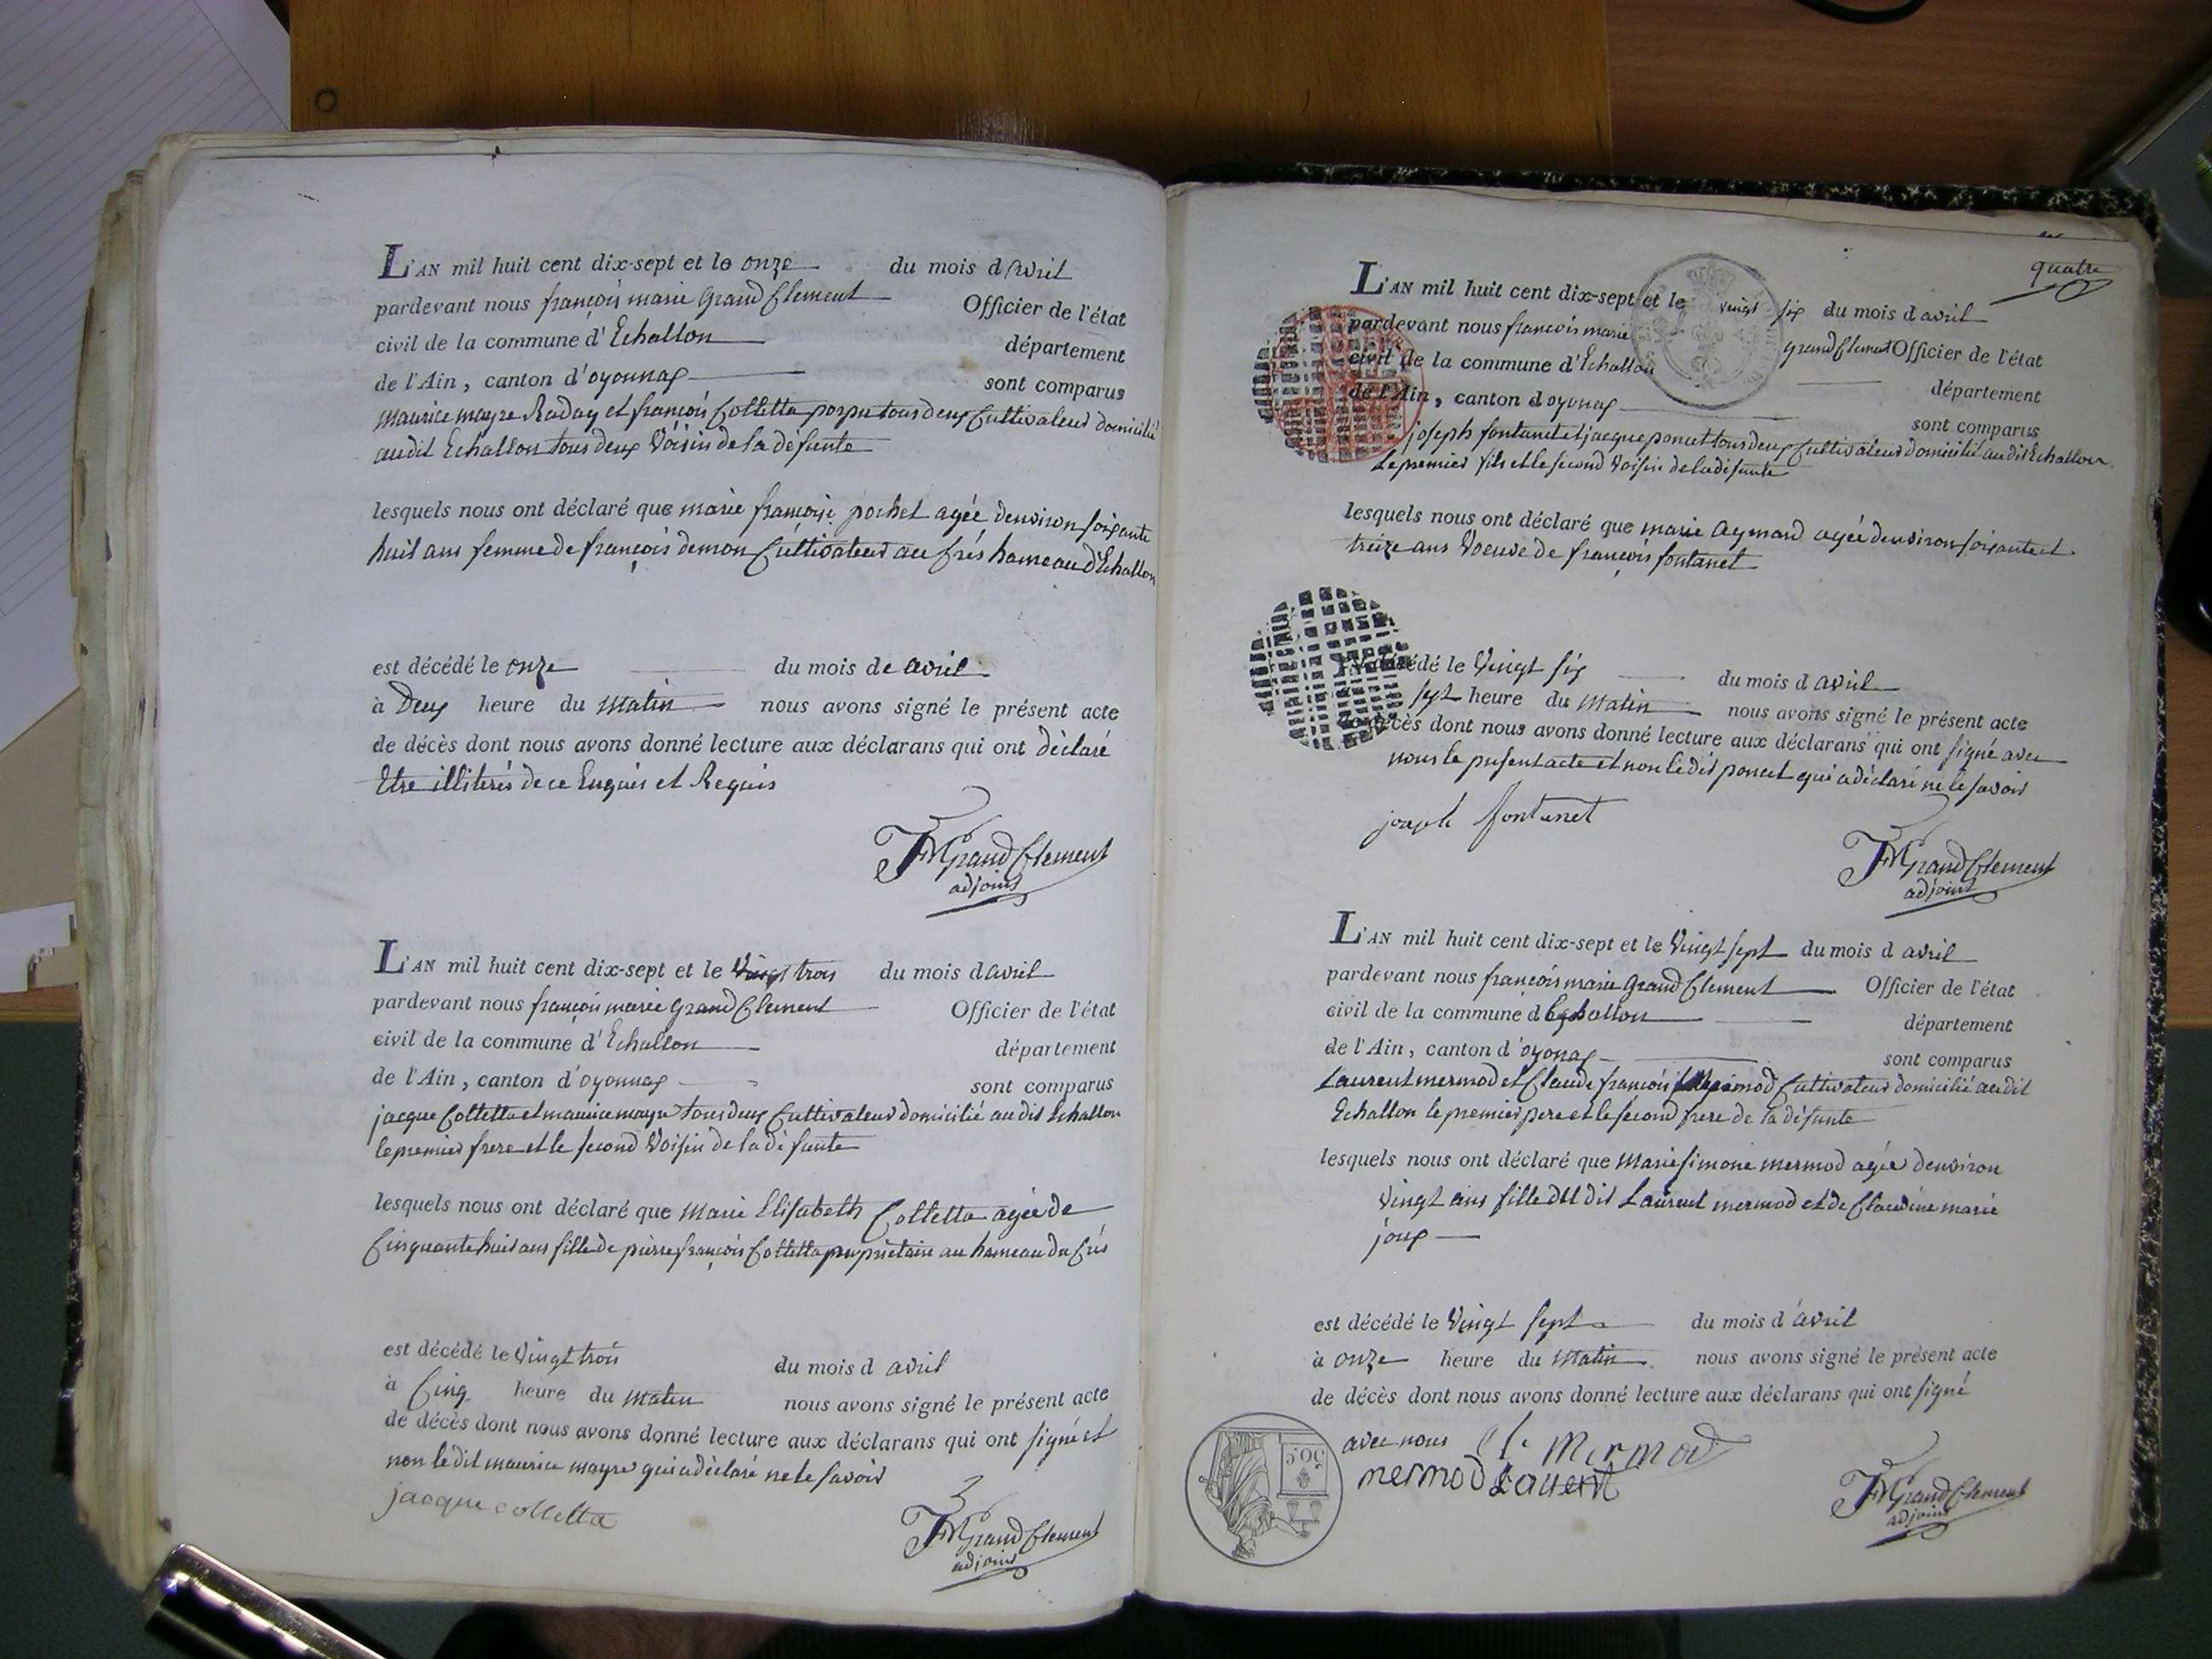 L'AN mil huit cent dix-sept et le onze du mois d avril
pardevant nous françois marie Grand Clement Officier de l'état
civil de la commune d'Echallon département
de l'Ain, canton d'oyonnax sont comparus
maurice mayre Raday et françois Colletta tous deux Cultivateur domicilié
audit Echallon tous deux Voisin de la défunte
lesquels nous ont déclaré que marie françoise pochet agée denviron soixante
huit ans femme de françois demon Cultivateur au Crés hameau d'Echallon
est décédé le onze du mois de avril
à Deux heure du matin nous avons signé le présent acte
de décès dont nous avons donné lecture aux déclarans qui ont déclaré
Etre illiterés de ce Enquis et Requis
FM Grand Clement
adjoint
L'AN mil huit cent dix-sept et le Vingt trois du mois d avril
pardevant nous françois marie Grand Clement Officier de l'état
civil de la commune d'Echallon département
de l'Ain, canton d'oyonnax sont comparus
jacque Colletta et maurice mayre tous deux Cultivateur domicilié au dit Echallon
le premier frere et le second Voisin de la défunte
lesquels nous ont déclaré que Marie Elisabeth Colletta agée de
Cinquante huit ans fille de pierre françois Colletta propriétaire au hameau du Crés
est décédé le Vingt trois du mois d avril
à Cinq heure du matin nous avons signé le présent acte
de décès dont nous avons donné lecture aux déclarans qui ont signé et
non le dit maurice mayre qui a déclaré ne le savoir
jacque colletta
FM Grand Clement
adjoint
quatre
L'AN mil huit cent dix-sept et le vingt six du mois d avril
pardevant nous françois marie grand Clement Officier de l'état
civil de la commune d'Echallon département
de l'Ain, canton d oyonax sont comparus
joseph fontanet et jacque poncet tous deux Cultivateur domicilié au dit Echallon
Le premier fils et le second Voisin de la défunte
lesquels nous ont déclaré que marie aymard agée denviron soixante et
treize ans Voeuve de françois fontanet
décédé le Vingt six du mois d avril
sept heure du matin nous avons signé le présent acte
de décès dont nous avons donné lecture aux déclarans qui ont signé avec
nous le present acte et non le dit poncet qui a déclaré ne le savoir
joseph fontanet
FM Grand Clement
adjoint
L'AN mil huit cent dix-sept et le Vingt sept du mois d avril
pardevant nous françois marie Grand Clement Officier de l'état
civil de la commune d Echallon département
de l'Ain, canton d'oyonax sont comparus
Laurent mermod et Claude françois mermod Cultivateur domicilié au dit
Echallon le premier pere et le second frere de la défunte
lesquels nous ont déclaré que Marie simone mermod agée denviron
vingt ans fille du dit Laurent mermod et de Claudine marie
joux
est décédé le Vingt sept du mois d'avril
à onze heure du matin nous avons signé le présent acte
de décès dont nous avons donné lecture aux déclarans qui ont signé
avec nous Mermod
mermod Laurent
FM Grand Clement
adjoint